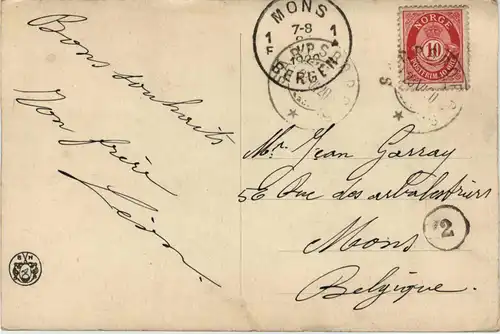 Bons souhaits
Ton frère
Léon.
MONS
7-8
1 1
F
BERGEN
NORGE
10
POSTFRIM. 10 ØRE
Mr. Jean Garray
5E Rue des arbalestriers
Mons
Belgique.
2
B H